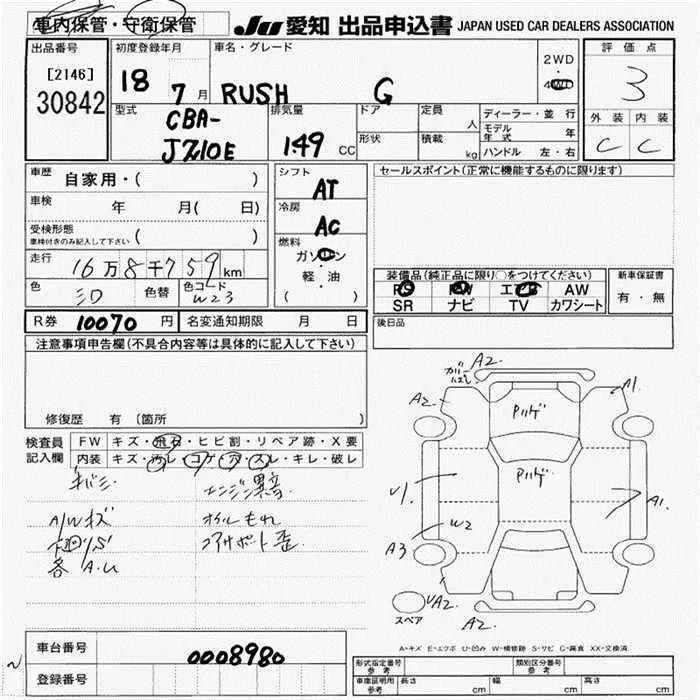 車内保管・守衛保管
JU 愛知 出品申込書 JAPAN USED CAR DEALERS ASSOCIATION
出品番号 初度登録年月 車名・グレード 2WD・4WD 評価点
[2146]
30842 18 7月 RUSH G 3
型式 排気量 ドア 定員 人 ディーラー・並行 外装 内装
CBA- モデル年式 年
JZ10E 149 CC 形状 積載 kg ハンドル 左・右 C C
車歴 自家用・( ) シフト AT セールスポイント(正常に機能するものに限ります)
車検 年 月( 日) 冷房 AC
受検形態 ( )
車検付きのみ記入して下さい
燃料 ガソリン・軽・油 ( )
走行 16万8千759km
色 シロ 色替 色コード W23
装備品(純正品に限り○をつけてください) 新車保証書
PS PW エアB AW 有・無
SR ナビ TV カワシート
R券 10070 円 名変通知期限 月 日 後日品
注意事項申告欄(不具合内容等は具体的に記入して下さい)
修復歴 有 〔箇所 〕
検査員 FW キズ・飛石・ヒビ割・リペア跡・X要
記入欄 内装 キズ・汚レ・コゲ・穴・スレ・キレ・破レ
キバミ エンジン異音
A/Wキズ オイルもれ
下廻りS アッパサポート歪
各 A.U
カバーハズレ A2
A2 A1
Pハゲ
Pハゲ
U1 A1
W2
A3
UA2 A2
スペア
A-キズ E-エクボ U-凹み W-補修跡 S-サビ C-腐食 XX-交換済
車台番号 0008980
登録番号
形式指定番号 参考 類別区分番号 参考
車庫証明用 参考 長さ cm 幅 cm 高さ cm